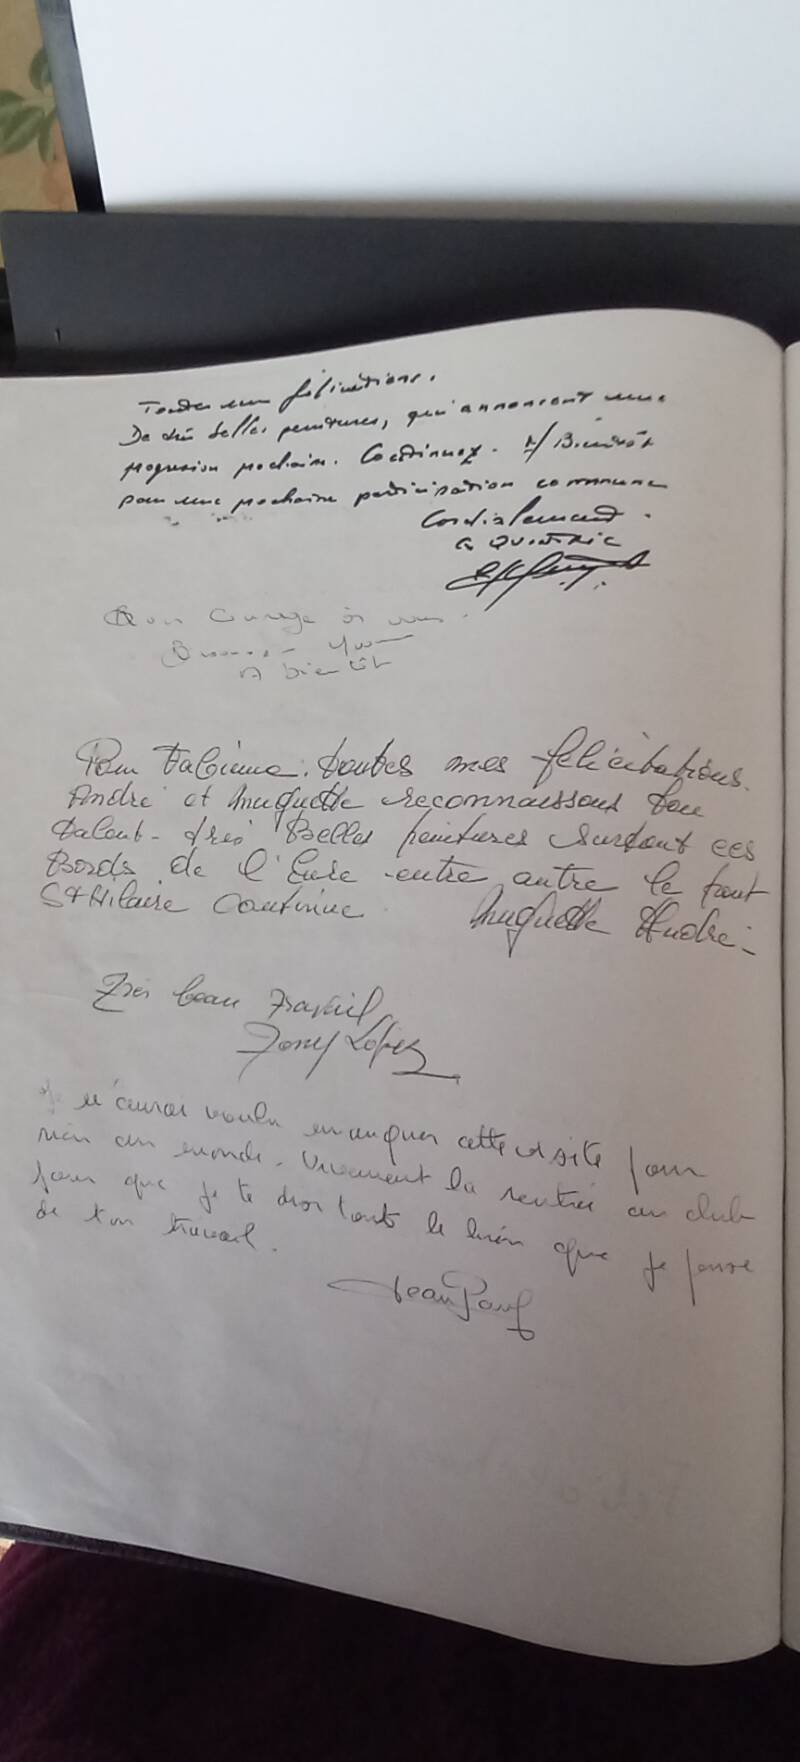 Toutes mes félicitations.
De très belles peintures, qui annoncent une
progression prochaine. Continuez. A/ Bientôt
pour une prochaine participation commune
Cordialement.
Bon courage à vous.
A bientôt
Pour Fabienne. toutes mes félicitations.
André et Huguette reconnaissons ton
talent - très Belles peintures surtout ces
Bords de l'Eure - entre autre le pont
St Hilaire continue Huguette André -
Très beau travail
Tony Lopez
Je n'aurai voulu manquer cette visite pour
rien au monde. Vivement la rentrée au club
pour que je te dise tout le bien que je pense
de ton travail.
Jean Paul